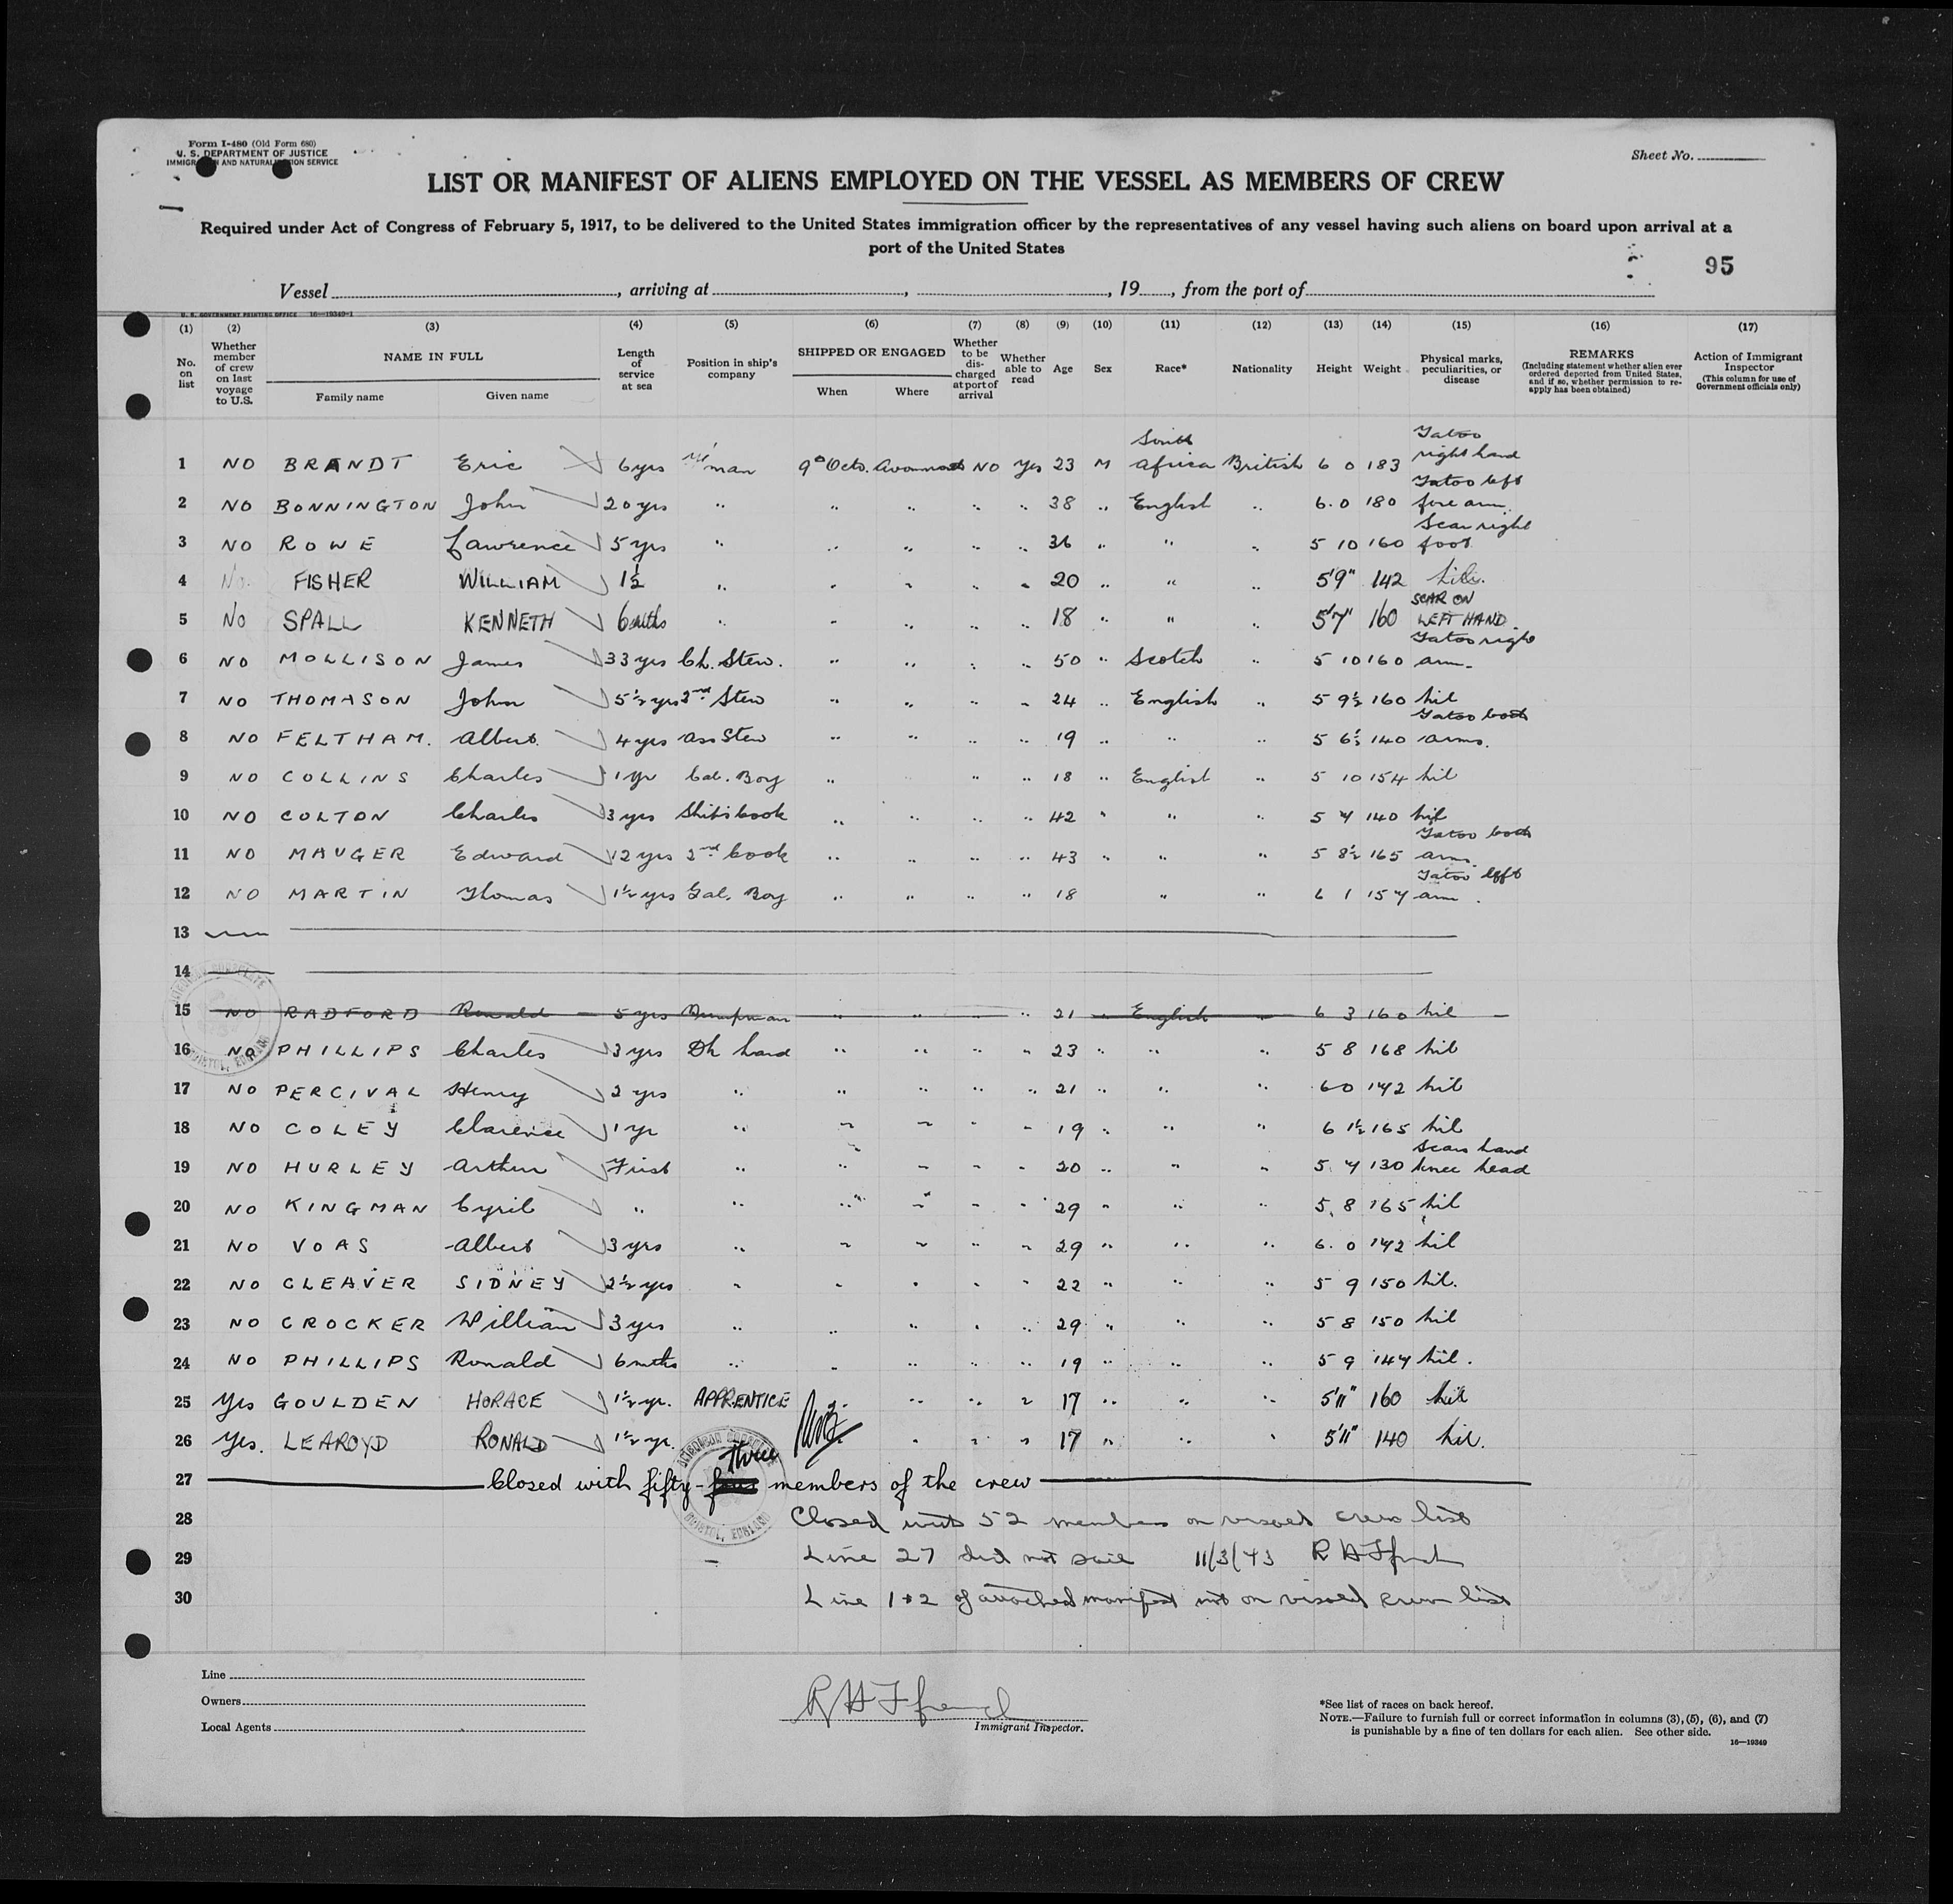 Form I-480 (Old Form 680)
U. S. DEPARTMENT OF JUSTICE
IMMIGRATION AND NATURALIZATION SERVICE
Sheet No.
LIST OR MANIFEST OF ALIENS EMPLOYED ON THE VESSEL AS MEMBERS OF CREW
Required under Act of Congress of February 5, 1917, to be delivered to the United States immigration officer by the representatives of any vessel having such aliens on board upon arrival at a
port of the United States
95
Vessel , arriving at , , 19 , from the port of
U. S. GOVERNMENT PRINTING OFFICE 16—19349-1
(1) (2) (3) (4) (5) (6) (7) (8) (9) (10) (11) (12) (13) (14) (15) (16) (17)
No. on list
Whether member of crew on last voyage to U.S.
NAME IN FULL
Family name Given name
Length of service at sea
Position in ship's company
SHIPPED OR ENGAGED
When Where
Whether to be discharged at port of arrival
Whether able to read
Age
Sex
Race*
Nationality
Height
Weight
Physical marks, peculiarities, or disease
REMARKS
(Including statement whether alien ever ordered deported from United States, and if so, whether permission to reapply has been obtained)
Action of Immigrant Inspector
(This column for use of Government officials only)
1 NO BRANDT Eric 6yrs man 9 Octo. Avonmouth NO Yes 23 M South Africa British 6 0 183 Tatoo right hand
2 NO BONNINGTON John 20 yrs " " " " " 38 " English " 6.0 180 Tatoo left fore arm
3 NO ROWE Lawrence 5 yrs " " " " " 36 " " " 5 10 160 Scar right foot
4 No FISHER WILLIAM 1½ " " " " " 20 " " " 5'9" 142 Nil.
5 No SPALL KENNETH 6 mths " " " " " 18 " " " 5'7" 160 SCAR ON LEFT HAND.
6 NO MOLLISON James 33 yrs Ch. Stew. " " " " 50 " Scotch " 5 10 160 Tatoo right arm.
7 NO THOMASON John 5½ yrs 2nd Stew " " " " 24 " English " 5 9½ 160 Nil
8 NO FELTHAM. Albert. 4 yrs Ass Stew " " " " 19 " " " 5 6½ 140 Tatoo both arms.
9 NO COLLINS Charles 1 yr Cab. Boy " " " 18 " English " 5 10 154 Nil
10 NO COLTON Charles 3 yrs Ships Cook " " " " 42 " " " 5 7 140 Nil
11 NO MAUGER Edward 12 yrs 2nd Cook " " " " 43 " " " 5 8½ 165 Tatoo both arms.
12 NO MARTIN Thomas 1½ yrs Gal. Boy " " " " 18 " " 6 1 157 Tatoo left arm.
13
14
15 NO RADFORD Ronald 5 yrs Pumpman " " " 21 English " 6 3 160 Nil
16 NO PHILLIPS Charles 3 yrs Dk hand " " " " 23 " " " 5 8 168 Nil
17 NO PERCIVAL Henry 2 yrs " " " " " 21 " " " 6 0 172 Nil
18 NO COLEY Clarence 1 yr " " " " " 19 " " " 6 1½ 165 Nil
19 NO HURLEY Arthur First " " " " " 20 " " " 5. 7 130 Scars hand knee head
20 NO KINGMAN Cyril " " " " " " 29 " " " 5. 8 165 Nil
21 NO VOAS Albert 3 yrs " " " " " 29 " " " 6. 0 172 Nil
22 NO CLEAVER SIDNEY 2½ yrs " " " " " 22 " " " 5 9 150 Nil.
23 NO CROCKER William 3 yrs " " " " " 29 " " " 5 8 150 Nil
24 NO PHILLIPS Ronald 6 mths " " " " " 19 " " " 5 9 147 Nil.
25 Yes GOULDEN HORACE 1½ yr. APPRENTICE " " " " 17 " " " 5'11" 160 Nil
26 Yes. LEAROYD RONALD 1½ yr. " " " 17 " " " 5'11" 140 Nil.
27 Closed with fifty-three members of the crew
28 Closed with 52 members on visaed crew list
29 Line 27 did not sail 11/3/43 R H Ffrench
30 Line 1+2 of attached manifest not on visaed crew list
Line
Owners
Local Agents
R H Ffrench
Immigrant Inspector.
*See list of races on back hereof.
NOTE.—Failure to furnish full or correct information in columns (3), (5), (6), and (7)
is punishable by a fine of ten dollars for each alien. See other side.
16—19349